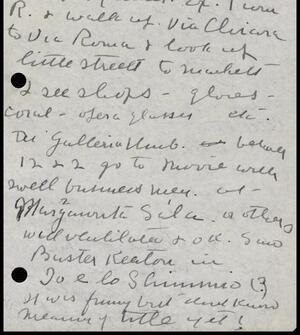 R. & walk up. Via Chiaia
to Via Roma & look up
little streets to markets
& see shops - gloves -
coral - opera glasses etc.
The Galleria Umb. between
12 & 2 go to movie with
swell business men. at
Margauerita Sala. as others
well ventilated & o.k. Saw
Buster Keaton in
Io e lo Scimmio (?)
It was funny but dont know
meaning of title yet!